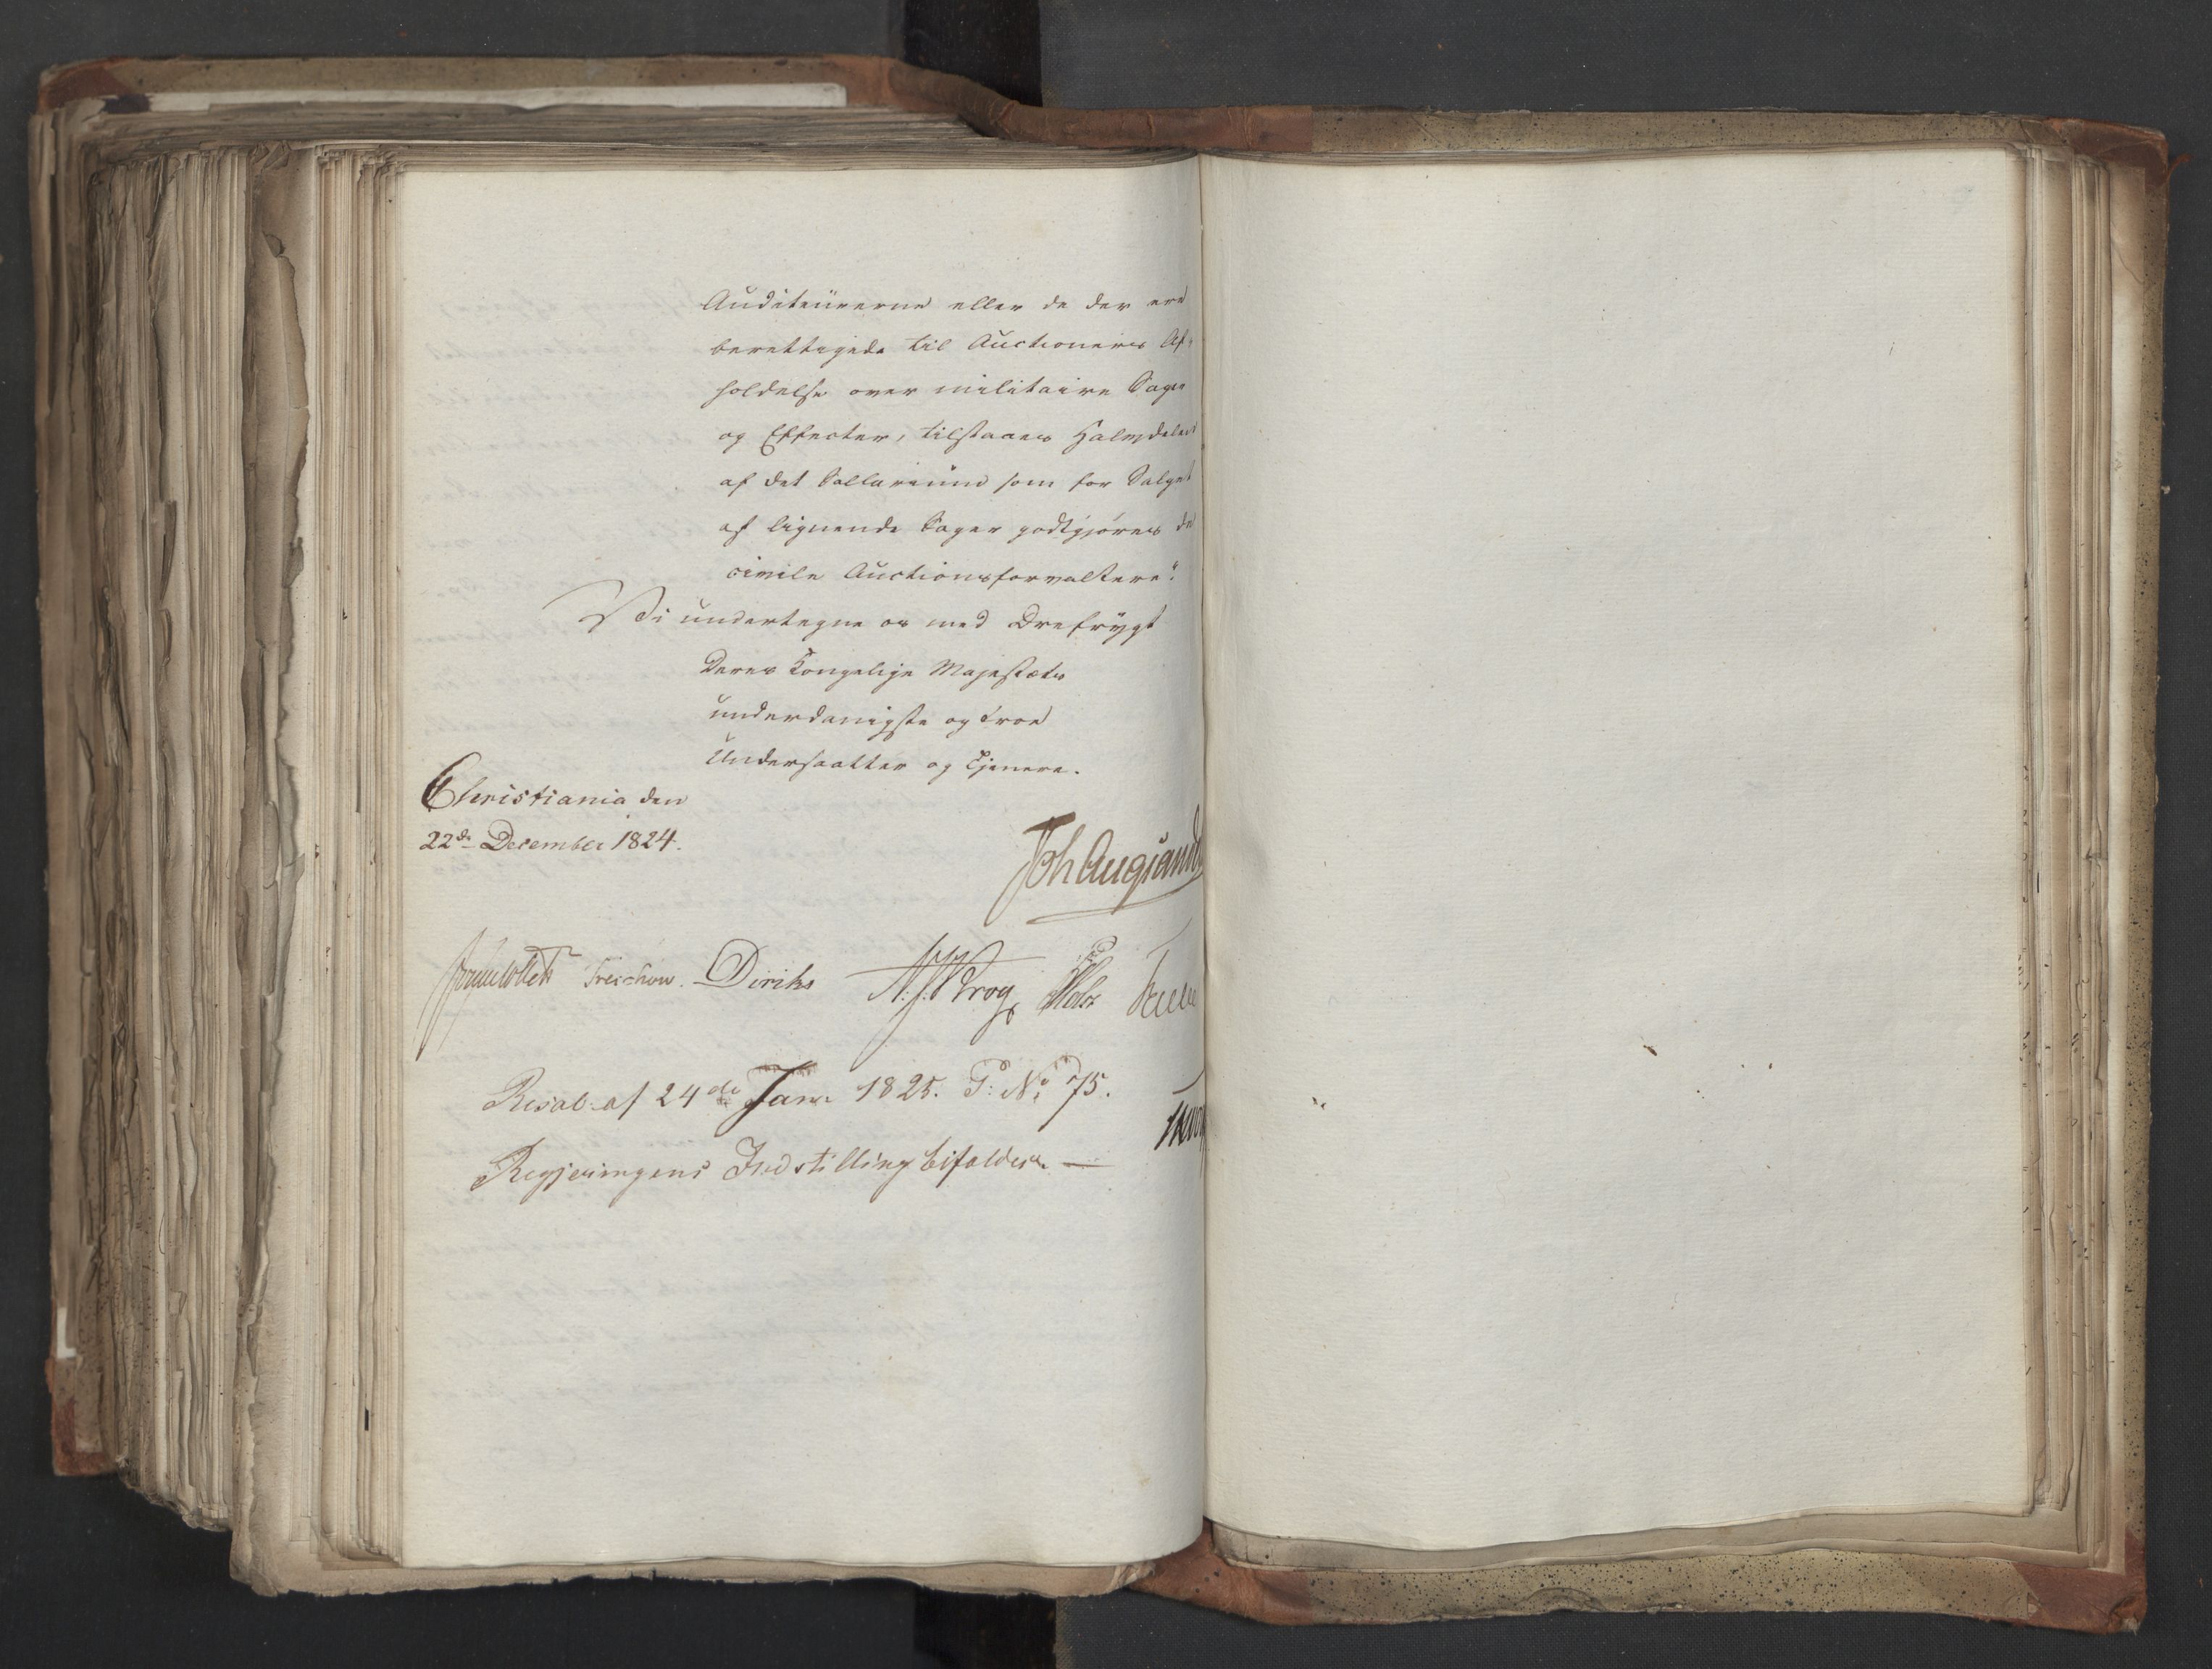 Auditeürerne eller de der ere
berettigede til Auctioners Af-
holdelse over militaire Sager
og Effecter, tilstaaes Halvdelen
af det Sallarium som for Salget
af lignende Sager godtgjøres de
civile Auctionsforvaltere".
Vi undertegne os med Ærefrygt
Deres Kongelige Majestæts
underdanigste og troe
Undersaatter og Tjenere.
Christiania den
22de December 1824.
Joh Aug Sand
Collett Treschow. Diriks N: J: Krog Holst
Resol: af 24de Janr 1825. P: No 75.
Regjeringens Indstilling bifaldes. —